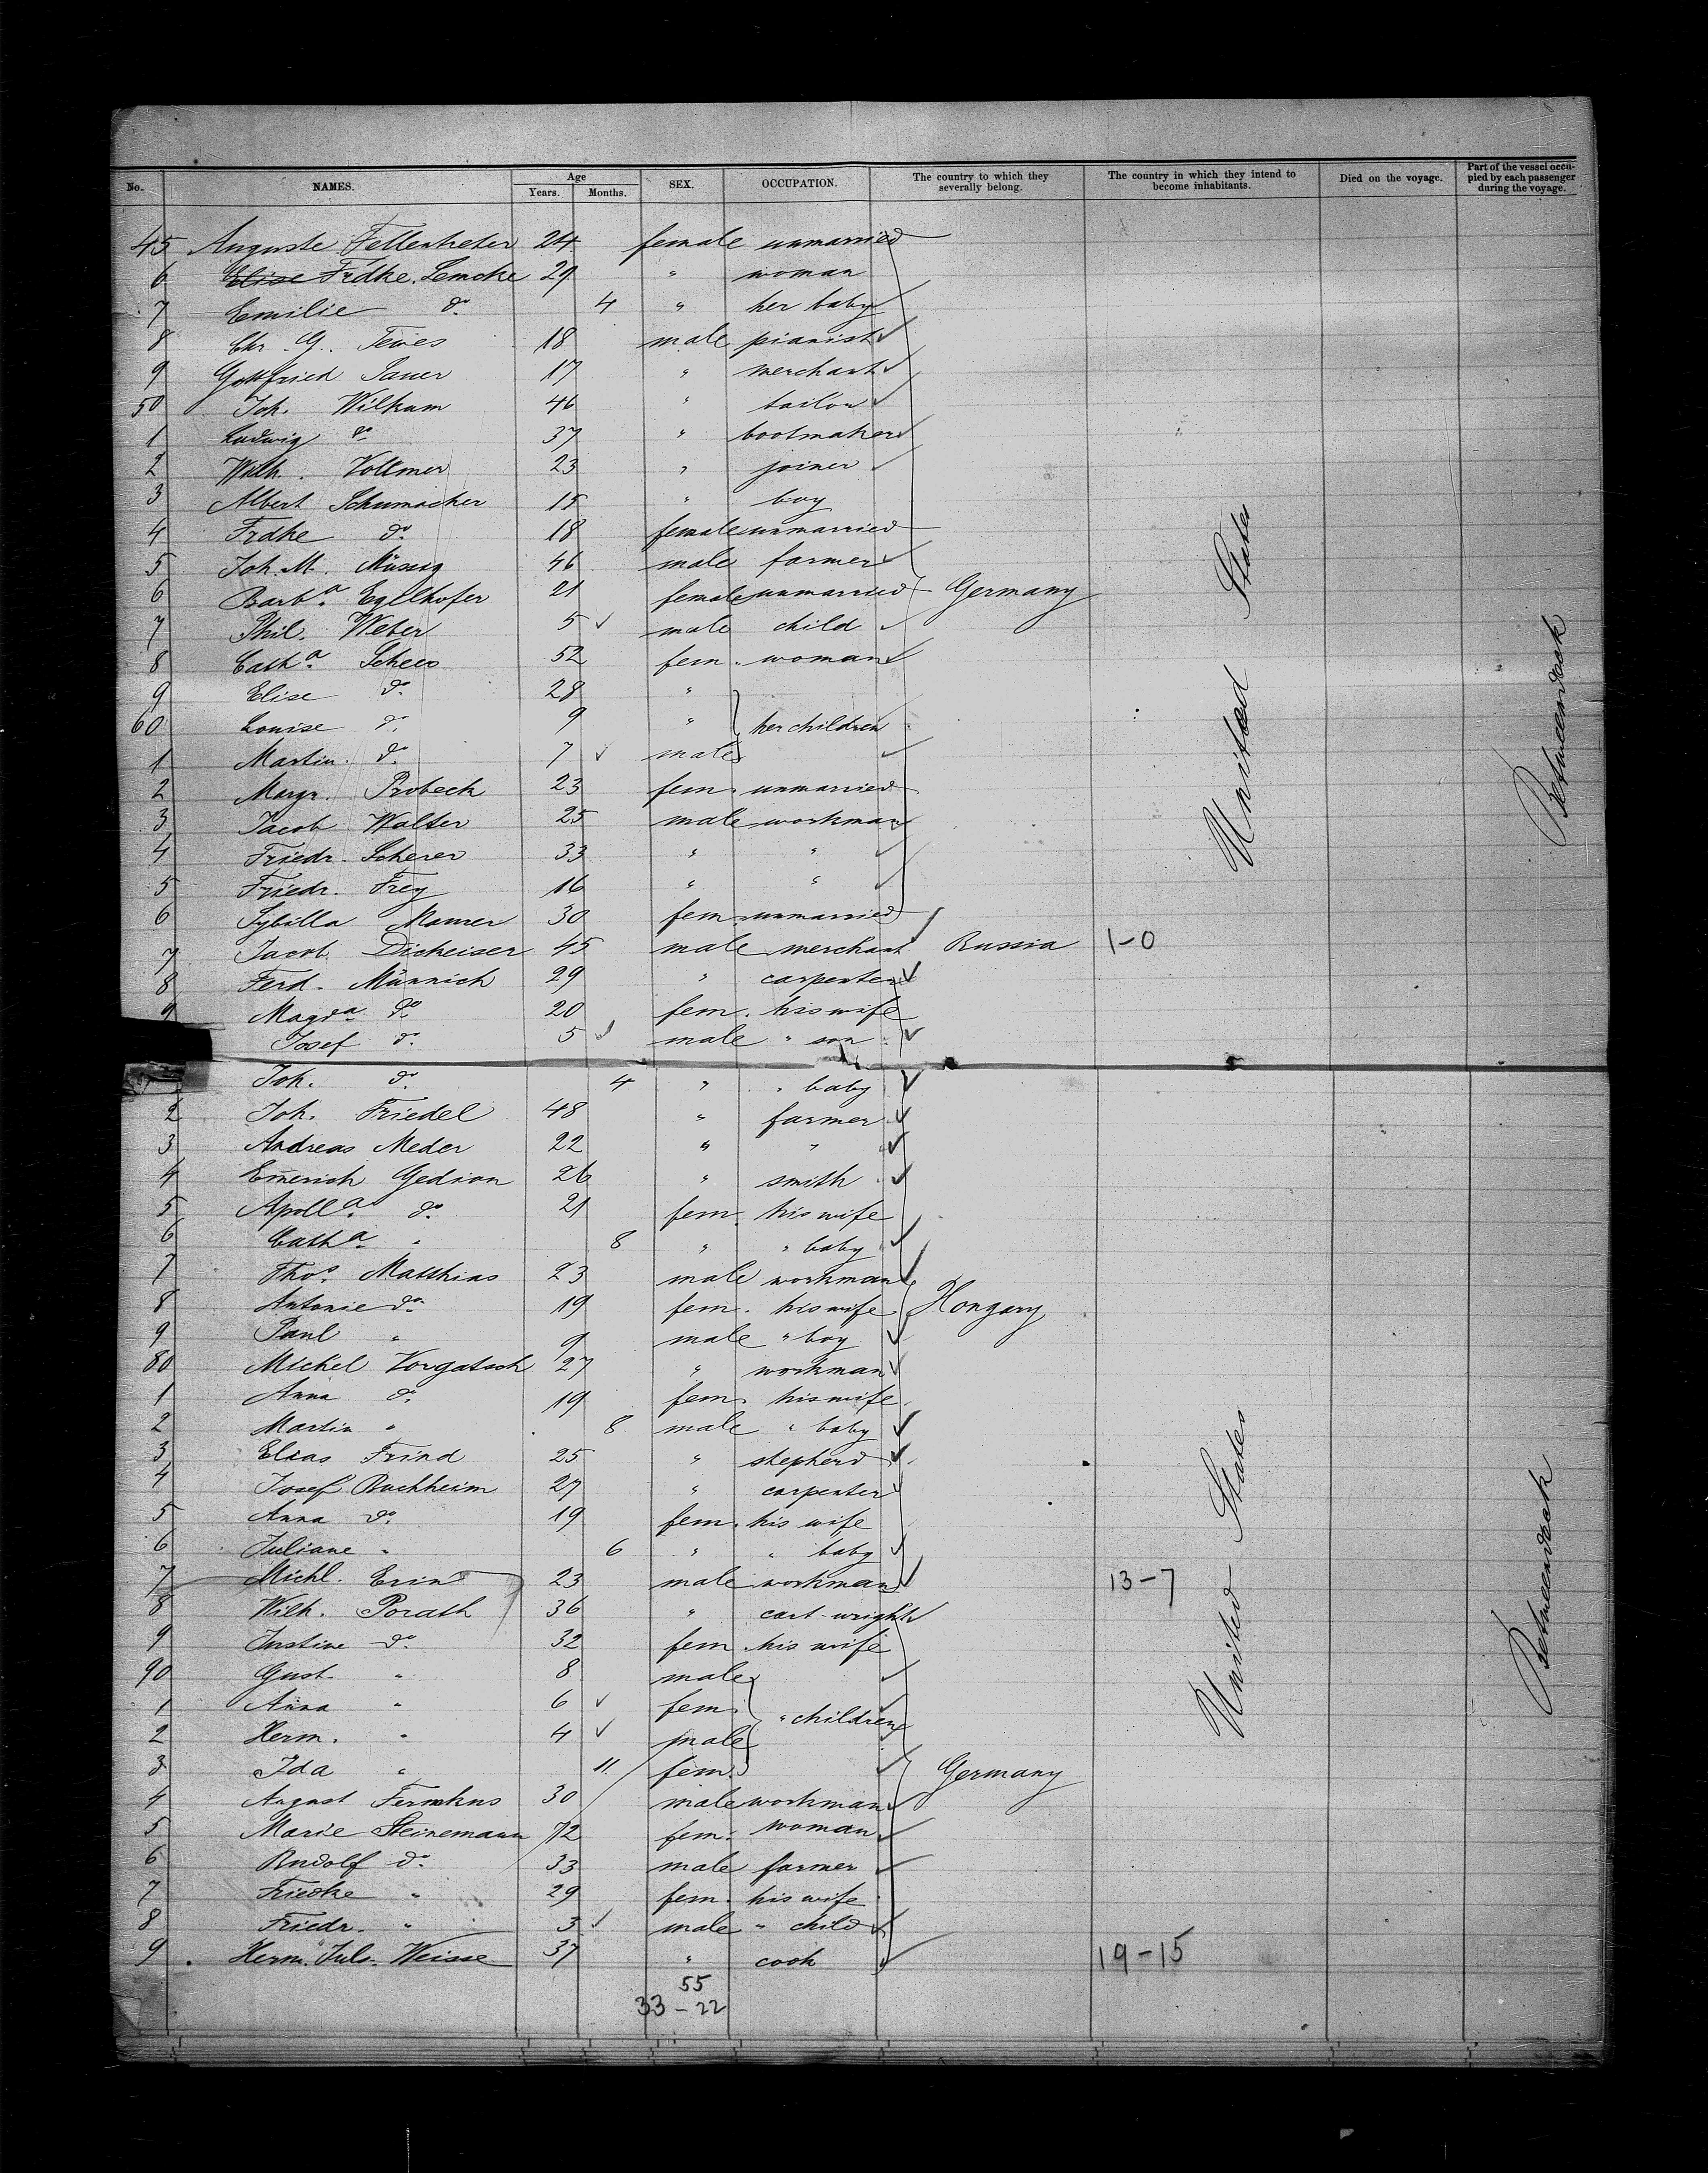 No. NAMES. Age Years. Months. SEX. OCCUPATION. The country to which they severally belong. The country in which they intend to become inhabitants. Died on the voyage. Part of the vessel occupied by each passenger during the voyage.
45 Auguste Fettentreter 24 female unmarried
6 Elise Frdke. Lemcke 29 " woman
7 Emilie do. 4 " her baby
8 Chr. G. Tewes 18 male pianist
9 Gottfried Sauer 17 " merchant
50 Joh. Wilkum 46 " tailor
1 Ludwig do 37 " bootmaker
2 Wilh. Vollmer 23 " joiner
3 Albert Schumacher 15 " boy
4 Frdke do. 18 female unmarried
5 Joh. M. 46 male farmer
6 Barba. Egllhofer 21 female unmarried Germany
7 Phil. Weber 5 male child
8 Catha. Schees 52 fem. woman
9 Elise do. 28 "
60 Louise do. 9 " her children
1 Martin do. 7 male
2 Margr. Probeck 23 fem. unmarried
3 Jacob Walter 25 male workman
4 Friedr. Scherer 33 " "
5 Friedr. Frey 16 " "
6 Sybilla Maurer 30 fem. unmarried
7 Jacob Dickeiser 45 male merchant Russia 1-0
8 Ferd. Männich 29 " carpenter
9 Magda. do 20 fem. his wife
Josef do. 5 male " son
Joh. do. 4 " " baby
2 Joh. Friedel 48 " farmer
3 Andreas Meder 22 " "
4 Em̄erich Gedion 26 " smith
5 Apolla. do. 21 fem. his wife
6 Catha. " 8 " " baby
7 Thos. Matthias 23 male workman
8 Antonie do. 19 fem. his wife Hongary
9 Paul " 9 male " boy
80 Michel Vorgatsch 27 " workman
1 Anna do. 19 fem. his wife
2 Martin " 8 male " baby
3 Elias Frind 25 " shepherd
4 Josef Buchheim 27 " carpenter
5 Anna do. 19 fem. his wife
6 Juliane " 6 " " baby
7 Michl. Erin 23 male workman 13-7
8 Wilh. Porath 36 " cart-wright
9 Justine do. 32 fem. his wife
90 Gust. " 8 male
1 Anna " 6 fem. " children
2 Herm. " 4 male
3 Ida " 11 fem. Germany
4 August 30 male workman
5 Marie Steinemann 72 fem. woman
6 Rudolf do. 33 male farmer
7 Friedke " 29 fem. his wife
8 Friedr. " 3 male " child
9 Herm. Juls. Weisse 37 " cook 19-15
55
33-22
United States
Betweendeck
United States
Betweendeck